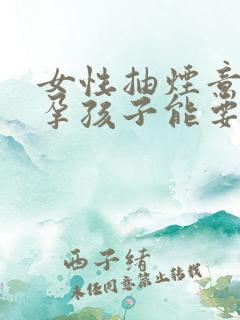 女性抽煙意
孕孩子能要
西子绪
未经同意禁止转载